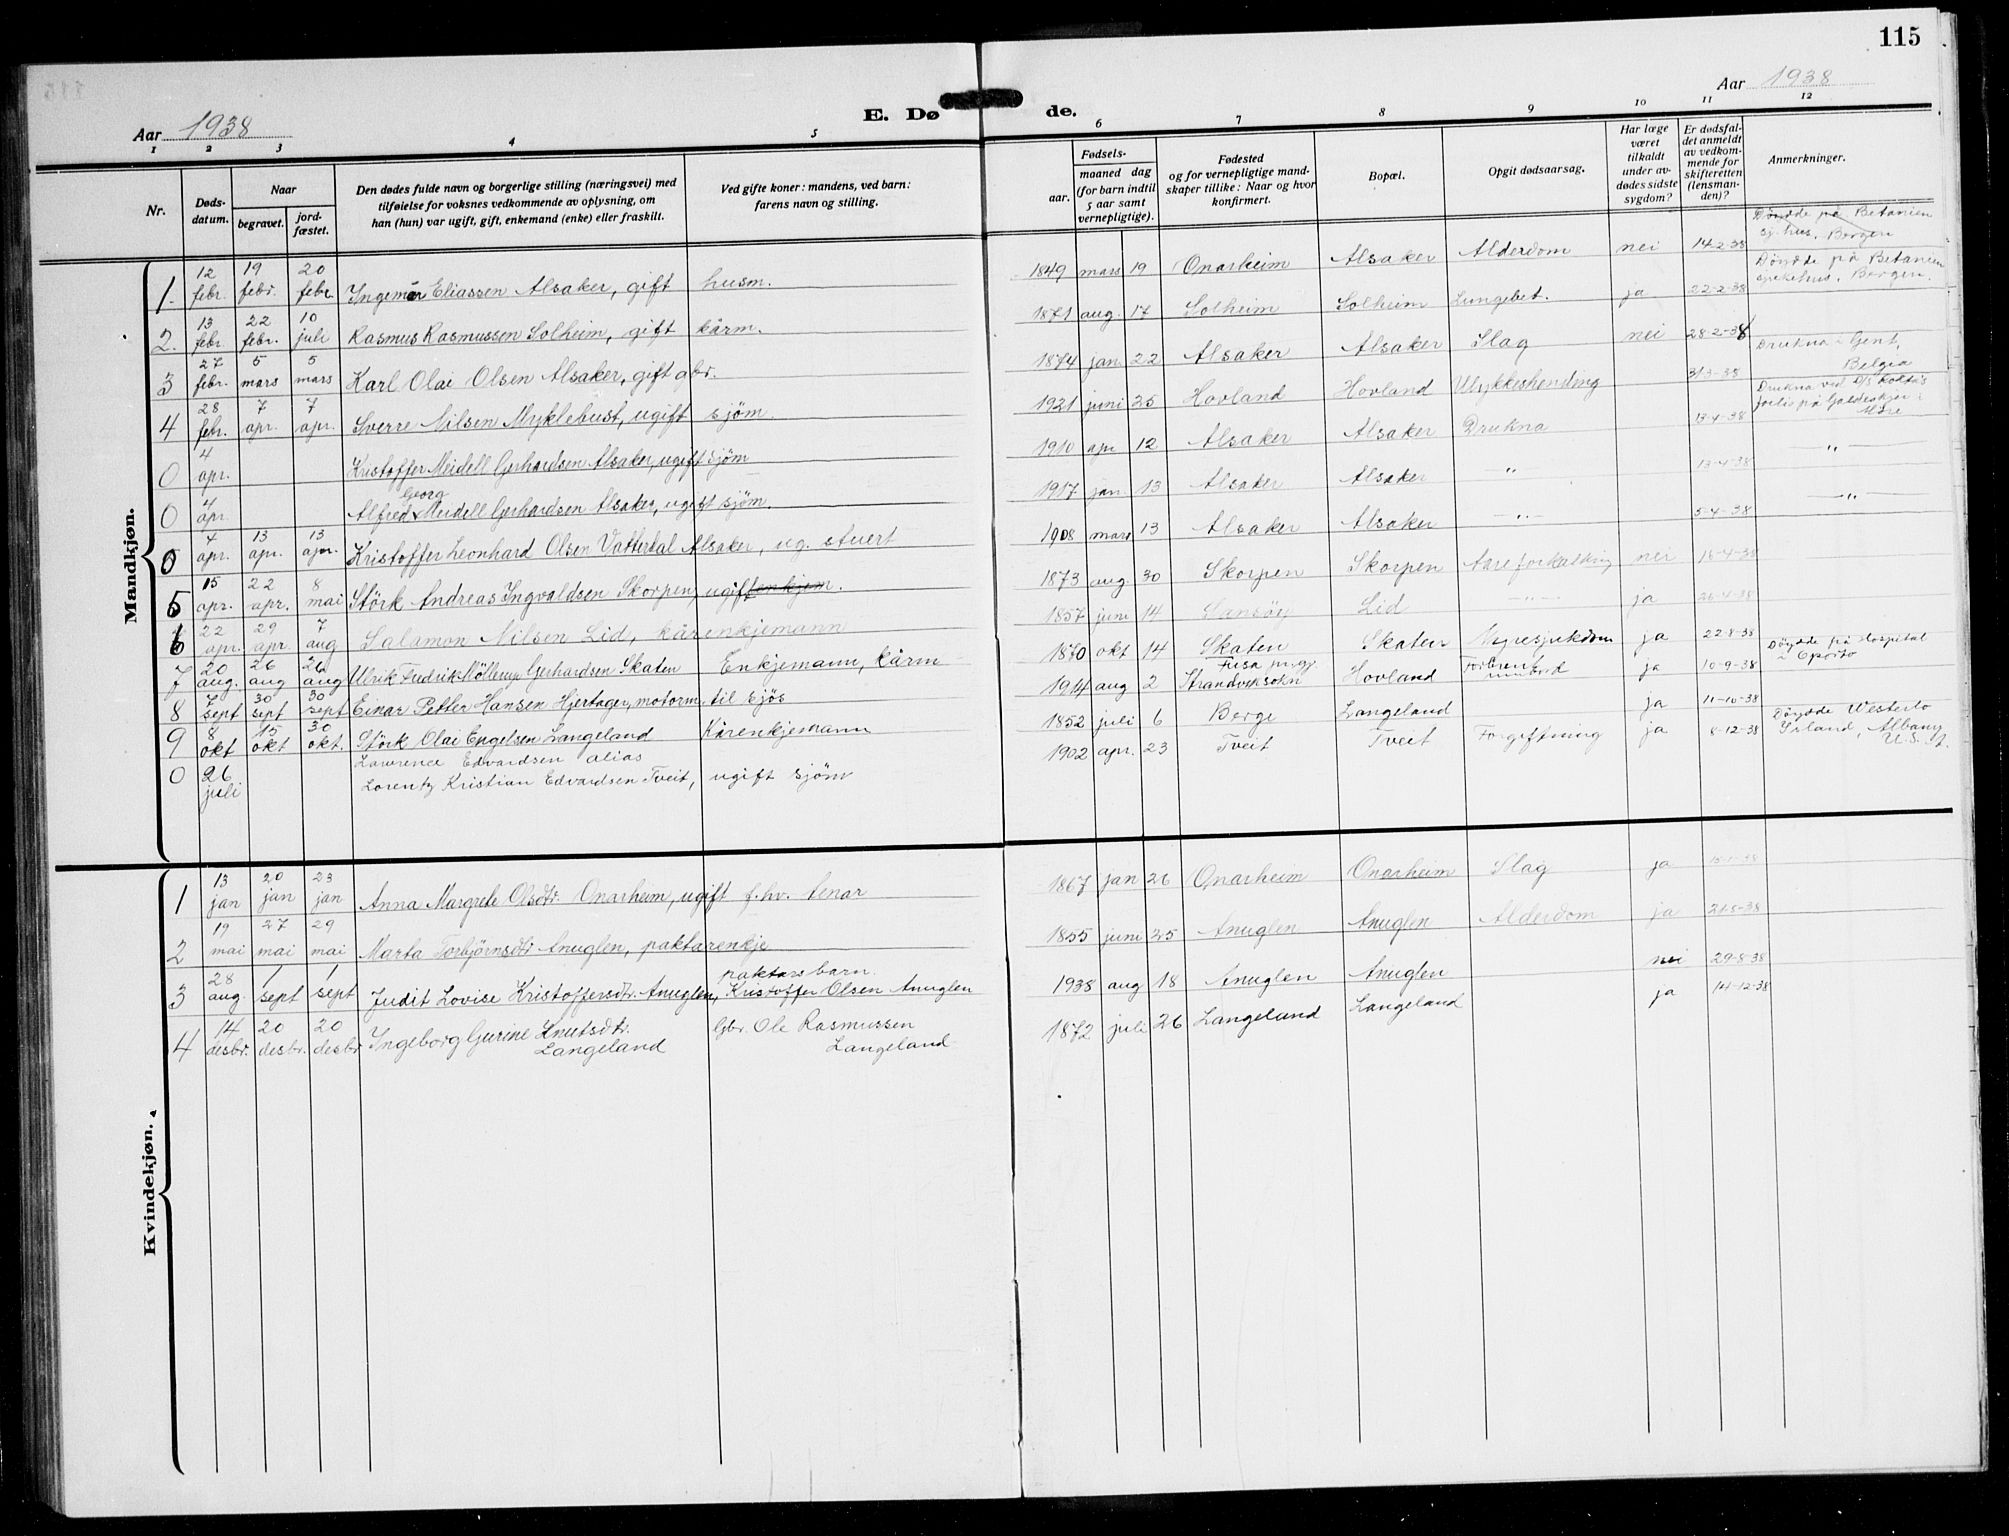 115
Aar 1938
E. Dø de.
Aar 1938
1 2 3 4 5 6 7 8 9 10 11 12
Nr.
Døds-
datum.
Naar
begravet.
jord-
fæstet.
Den dødes fulde navn og borgerlige stilling (næringsvei) med
tilføielse for voksnes vedkommende av oplysning, om
han (hun) var ugift, gift, enkemand (enke) eller fraskilt.
Ved gifte koner: mandens, ved barn:
farens navn og stilling.
Fødsels-
aar.
maaned dag
(for barn indtil
5 aar samt
vernepligtige).
Fødested
og for vernepligtige mand-
skaper tillike: Naar og hvor
konfirmert.
Bopæl.
Opgit dødsaarsag.
Har læge
været
tilkaldt
under av-
dødes sidste
sygdom?
Er dødsfal-
det anmeldt
av vedkom-
mende for
skifteretten
(lensman-
den)?
Anmerkninger.
Mandkjøn.
1. 12 febr. 19 febr. 20 febr. Ingemar Eliassen Alsaker, gift husm. 1849 mars 19 Onarheim Alsaker Alderdom nei 14-2-38 Döydde på Betanien sj.hus. Bergen
2. 13 febr. 22 febr. 10 juli Rasmus Rasmussen Solheim, gift kårm. 1871 aug. 17 Solheim Solheim Lungebet. ja 22-2-38 Döydde på Betanien sjukehus. Bergen.
3 27 febr. 5 mars 5 mars Karl Olai Olsen Alsaker, gift gbr. 1874 jan 22 Alsaker Alsaker Slag nei 28-2-38
4 28 febr. 7 apr. 7 apr. Sverre Nilsen Myklebust, ugift sjöm. 1921 juni 25 Hovland Hovland Ulykkeshending 31-3-38 Drukna i Gent, Belgia
0 4 apr. Kristoffer Meidell Gerhardsen Alsaker, ugift sjöm 1910 apr 12 Alsaker Alsaker Drukna 13-4-38 Drukna ved D/S forlis på
0 4 apr. Alfred Georg Meidell Gerhardsen Alsaker, ugift sjöm. 1917 jan. 13 Alsaker Alsaker —"— 13-4-38 —"—
0 4 apr. 13 apr. 13 apr. Kristoffer Leonhard Olsen Vatterdal Alsaker, ug. stuert 1908 mars 13 Alsaker Alsaker —"— 5-4-38 —"—
5 15 apr. 22 apr. 8 mai Störk Andreas Ingvaldsen Skorpen, ugift enkjem. 1873 aug. 30 Skorpen Skorpen Aareforkalkning nei 16-4-38
6 22 apr. 29 apr 7 aug Salamon Nilsen Lid, kårenkjemann 1857 juni 14 Lid —"— ja 26-4-38
7 20 aug. 26 aug 26 aug Ulrik Fredrik Möllerup Gerhardsen Skaten Enkjemann, kårm 1870 okt 14 Skaten Skaten Nyresjukdom ja 22-8-38
8 7 sept 30 sept 30 sept Einar Petter Hansen Hjertager, motorm. til sjös 1914 aug 2 Fusa prgj. Strandviksokn Hovland Forbrent ja 10-9-38 Döydde på Hospital i Oporto
9 8 okt 15 okt 30 okt. Störk Olai Engelsen Langeland Kårenkjemann 1852 juli 6 Berge Langeland ja 11-10-38
0 26 juli Lawrence Edvardsen alias
Lorentz Kristian Edvardsen Tveit, ugift sjöm 1902 apr. 23 Tveit Tveit Forgiftning ja 8-12-38 Döydde Westerlo Island, Albany U.S.A.
Kvindekjøn.
1 13 jan 20 jan 23 jan Anna Margrete Olsdtr. Onarheim, ugift f.hv. tenar 1867 jan 26 Onarheim Onarheim Slag ja 15-1-38
2 19 mai 27 mai 29 mai Marta Torbjørnsdtr Anuglen, paktarenkje 1855 juni 25 Anuglen Anuglen Alderdom ja 21-5-38
3 28 aug 1 sept 1 sept Judit Lovise Kristoffersdtr. Anuglen, paktars barn. Kristoffer Olsen Anuglen 1938 aug 18 Anuglen Anuglen nei 29-8-38
4 14 desbr. 20 desbr. 20 desbr Ingeborg Gurine Knutsdtr. Langeland Gbr. Ole Rasmussen Langeland 1872 juli 26 Langeland Langeland ja 14-12-38